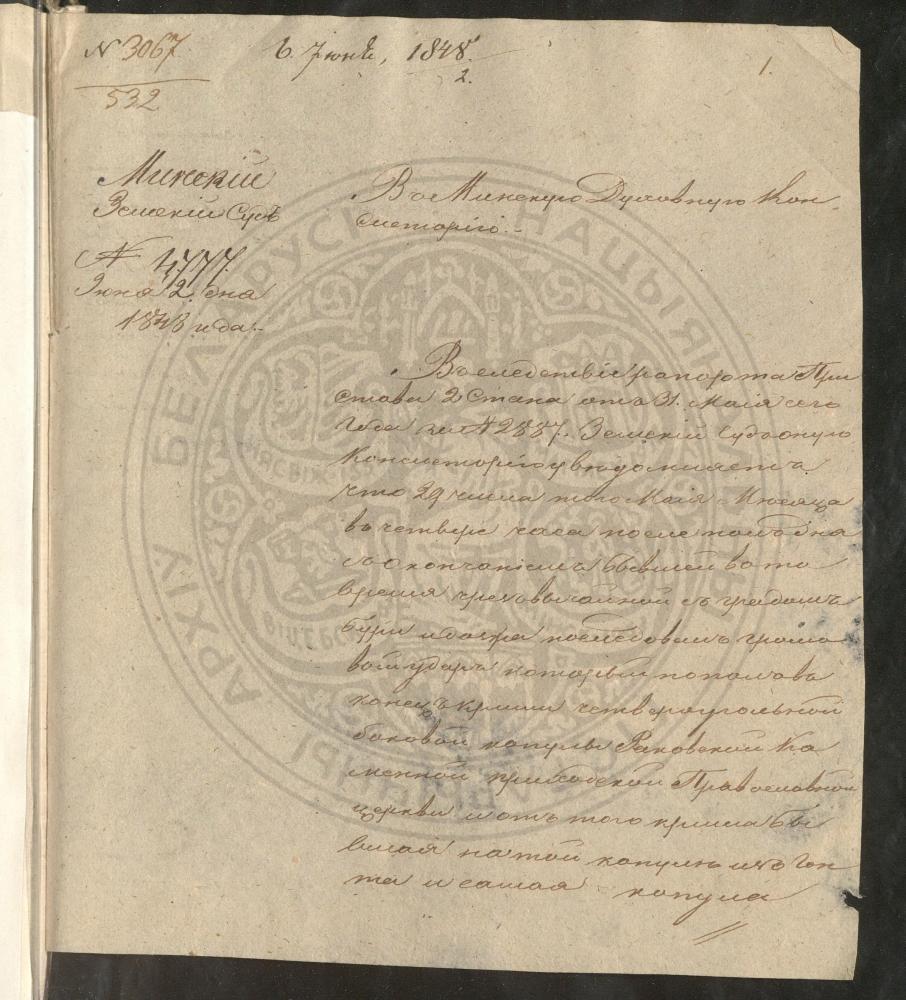 N 3067
532
6. Июня, 1848.
2.
1.
Минскій
Земскій Судъ
№ 4777.
Іюня 2 дня
1848 года.
Въ Минскую Духовную Кон-
систорію.
Въ следствіе рапорта При
става 2 Стана отъ 31. Маія сего
Года за № 2887. Земскій Судъ оную
Консисторію увѣдомляетъ
что 29 числа того Маія Мѣсяца
въ четверт часа после полъ дня
съ окончаніемъ бывшей во то
время чрезвычайной съ градомъ
бури и дождя последовалъ громо
вой ударъ который попалъ въ
конецъ крыши четвероугольной
боковой копулы Раковской Ка
менной приходской Православной
церкви и отъ того крыша бы
вшая на той копуле изъ Гон
та и самая копула
АРХІЎ БЕЛАРУСІ
НАЦЫЯНАЛЬНЫ